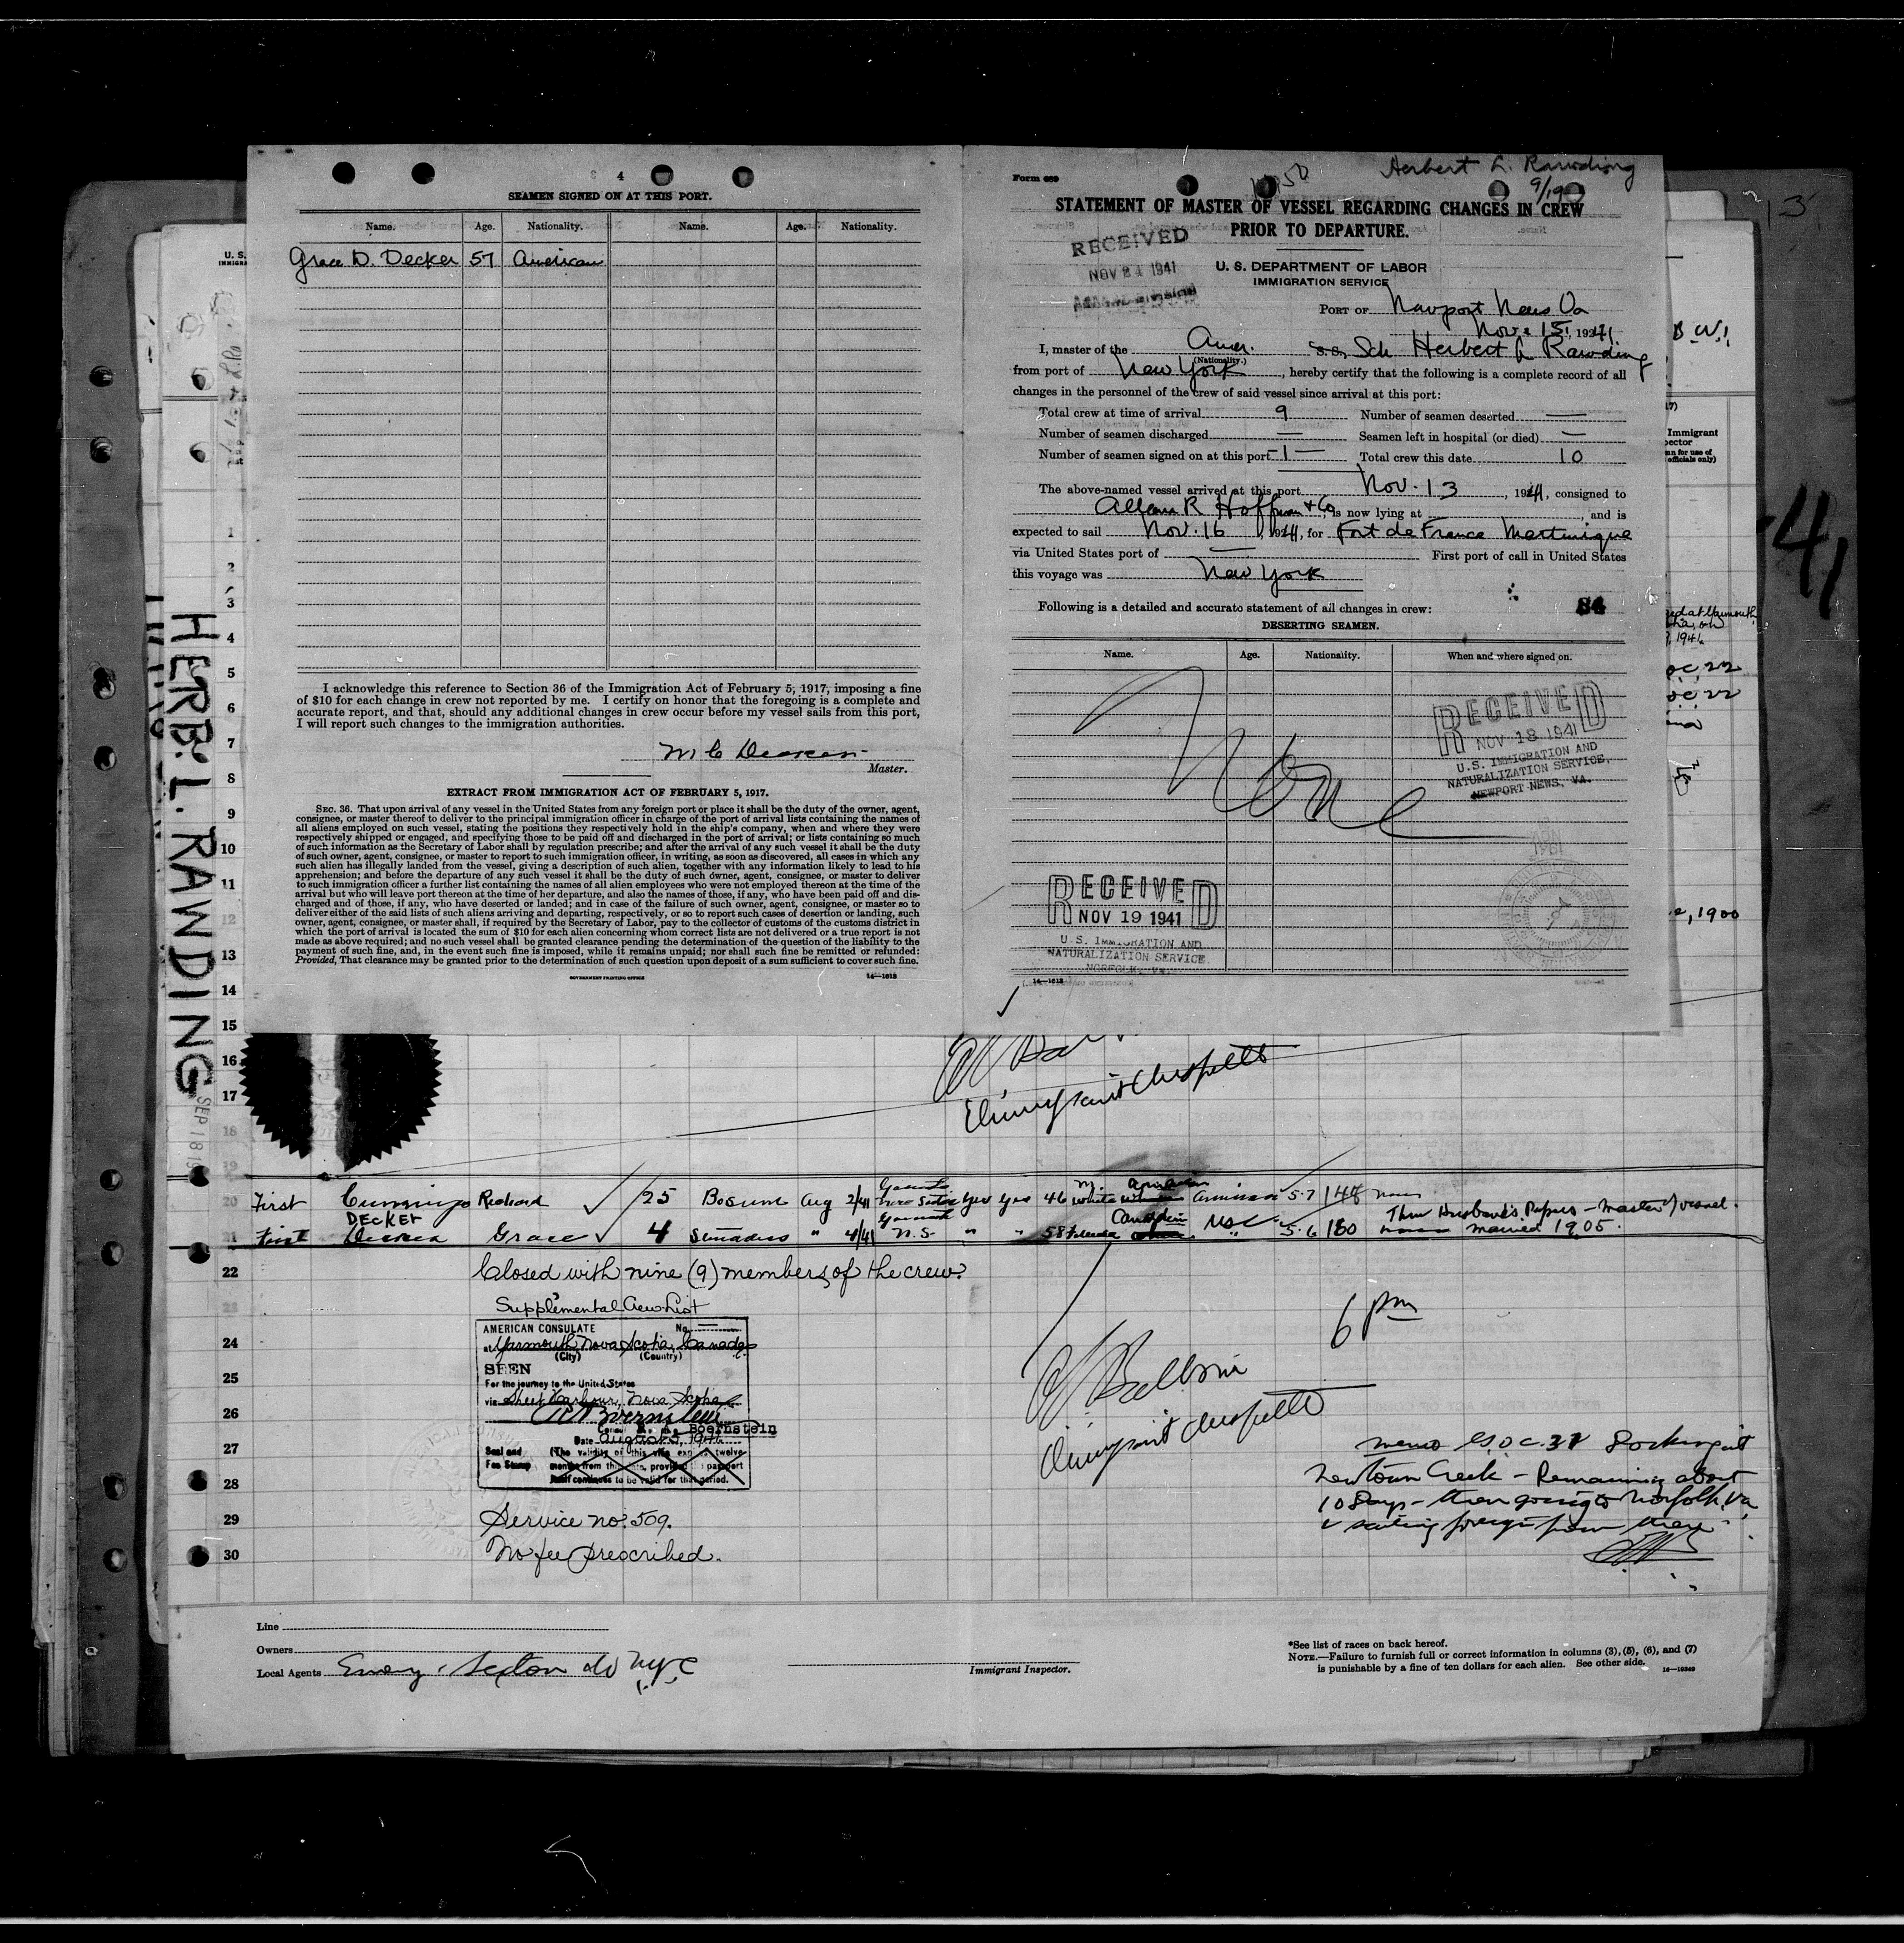 4
SEAMEN SIGNED ON AT THIS PORT.
Name. Age. Nationality. Name. Age. Nationality.
Grace D. Decker 57 American
I acknowledge this reference to Section 36 of the Immigration Act of February 5, 1917, imposing a fine
of $10 for each change in crew not reported by me. I certify on honor that the foregoing is a complete and
accurate report, and that, should any additional changes in crew occur before my vessel sails from this port,
I will report such changes to the immigration authorities.
Master.
EXTRACT FROM IMMIGRATION ACT OF FEBRUARY 5, 1917.
SEC. 36. That upon arrival of any vessel in the United States from any foreign port or place it shall be the duty of the owner, agent,
consignee, or master thereof to deliver to the principal immigration officer in charge of the port of arrival lists containing the names of
all aliens employed on such vessel, stating the positions they respectively hold in the ship's company, when and where they were
respectively shipped or engaged, and specifying those to be paid off and discharged in the port of arrival; or lists containing so much
of such information as the Secretary of Labor shall by regulation prescribe; and after the arrival of any such vessel it shall be the duty
of such owner, agent, consignee, or master to report to such immigration officer, in writing, as soon as discovered, all cases in which any
such alien has illegally landed from the vessel, giving a description of such alien, together with any information likely to lead to his
apprehension; and before the departure of any such vessel it shall be the duty of such owner, agent, consignee, or master to deliver
to such immigration officer a further list containing the names of all alien employees who were not employed thereon at the time of the
arrival but who will leave port thereon at the time of her departure, and also the names of those, if any, who have been paid off and dis-
charged and of those, if any, who have deserted or landed; and in case of the failure of such owner, agent, consignee, or master so to
deliver either of the said lists of such aliens arriving and departing, respectively, or so to report such cases of desertion or landing, such
owner, agent, consignee, or master shall, if required by the Secretary of Labor, pay to the collector of customs of the customs district in
which the port of arrival is located the sum of $10 for each alien concerning whom correct lists are not delivered or a true report is not
made as above required; and no such vessel shall be granted clearance pending the determination of the question of the liability to the
payment of such fine, and, in the event such fine is imposed, while it remains unpaid; nor shall such fine be remitted or refunded:
Provided, That clearance may be granted prior to the determination of such question upon deposit of a sum sufficient to cover such fine.
GOVERNMENT PRINTING OFFICE 14—1612
Herbert L. Rawding
Form 689
STATEMENT OF MASTER OF VESSEL REGARDING CHANGES IN CREW
PRIOR TO DEPARTURE.
RECEIVED
NOV 24 1941
U. S. DEPARTMENT OF LABOR
IMMIGRATION SERVICE
PORT OF Newport News Va
Nov. 15, 1941
I, master of the Amer. S.S. Sch Herbert L Rawding
(Nationality.)
from port of New York, hereby certify that the following is a complete record of all
changes in the personnel of the crew of said vessel since arrival at this port:
Total crew at time of arrival 9 Number of seamen deserted —
Number of seamen discharged — Seamen left in hospital (or died) —
Number of seamen signed on at this port 1 Total crew this date 10
The above-named vessel arrived at this port Nov. 13, 1941, consigned to
Allan R Hoffman & Co, is now lying at , and is
expected to sail Nov. 16, 1941, for Fort de France Martinique
via United States port of — First port of call in United States
this voyage was New York
Following is a detailed and accurate statement of all changes in crew: 84
DESERTING SEAMEN.
Name. Age. Nationality. When and where signed on.
None
RECEIVED
NOV 18 1941
U.S. IMMIGRATION AND
NATURALIZATION SERVICE,
NEWPORT NEWS, VA.
RECEIVED
NOV 19 1941
U.S. IMMIGRATION AND
NATURALIZATION SERVICE
NORFOLK, VA.
14—1612
HERB. L. RAWDING
SEP 18 19
41
, 1900
1
2
3
4
5
6
7
8
9
10
11
12
13
14
15
16
17
18
19
Immigrant Inspector
20 First Cummings Richard 25 Bosun Aug 2/41 Yarmouth Nova Scotia Yes Yes 46 M. White American American 5-7 148 none
21 First DECKER Grace 4 Stewardess " 4/41 Yarmouth N.S. " " 58 Female Canadian USC 5-6 180 Thru Husband's Papers - Master of vessel. married 1905.
22 Closed with nine (9) members of the crew.
23 Supplemental Crew List
24
25
26
27
28
29
30
AMERICAN CONSULATE No. —
at Yarmouth, Nova Scotia, Canada
(City) (Country)
SEEN
For the journey to the United States
via Sheet Harbour, Nova Scotia
Consul R. A. Boernstein
Date August 5, 1941
Seal and Fee Stamp
(The validity of this visa expires twelve
months from this date, provided the passport
itself continues to be valid for that period.
Service no. 509.
No fee prescribed.
6 pm
Immigrant Inspector
Newtown Creek - Remaining about
10 Days - then going to Norfolk, Va
& sailing foreign from there
Line
Owners
Local Agents
Immigrant Inspector.
*See list of races on back hereof.
NOTE.—Failure to furnish full or correct information in columns (3), (5), (6), and (7)
is punishable by a fine of ten dollars for each alien. See other side. 16—19349